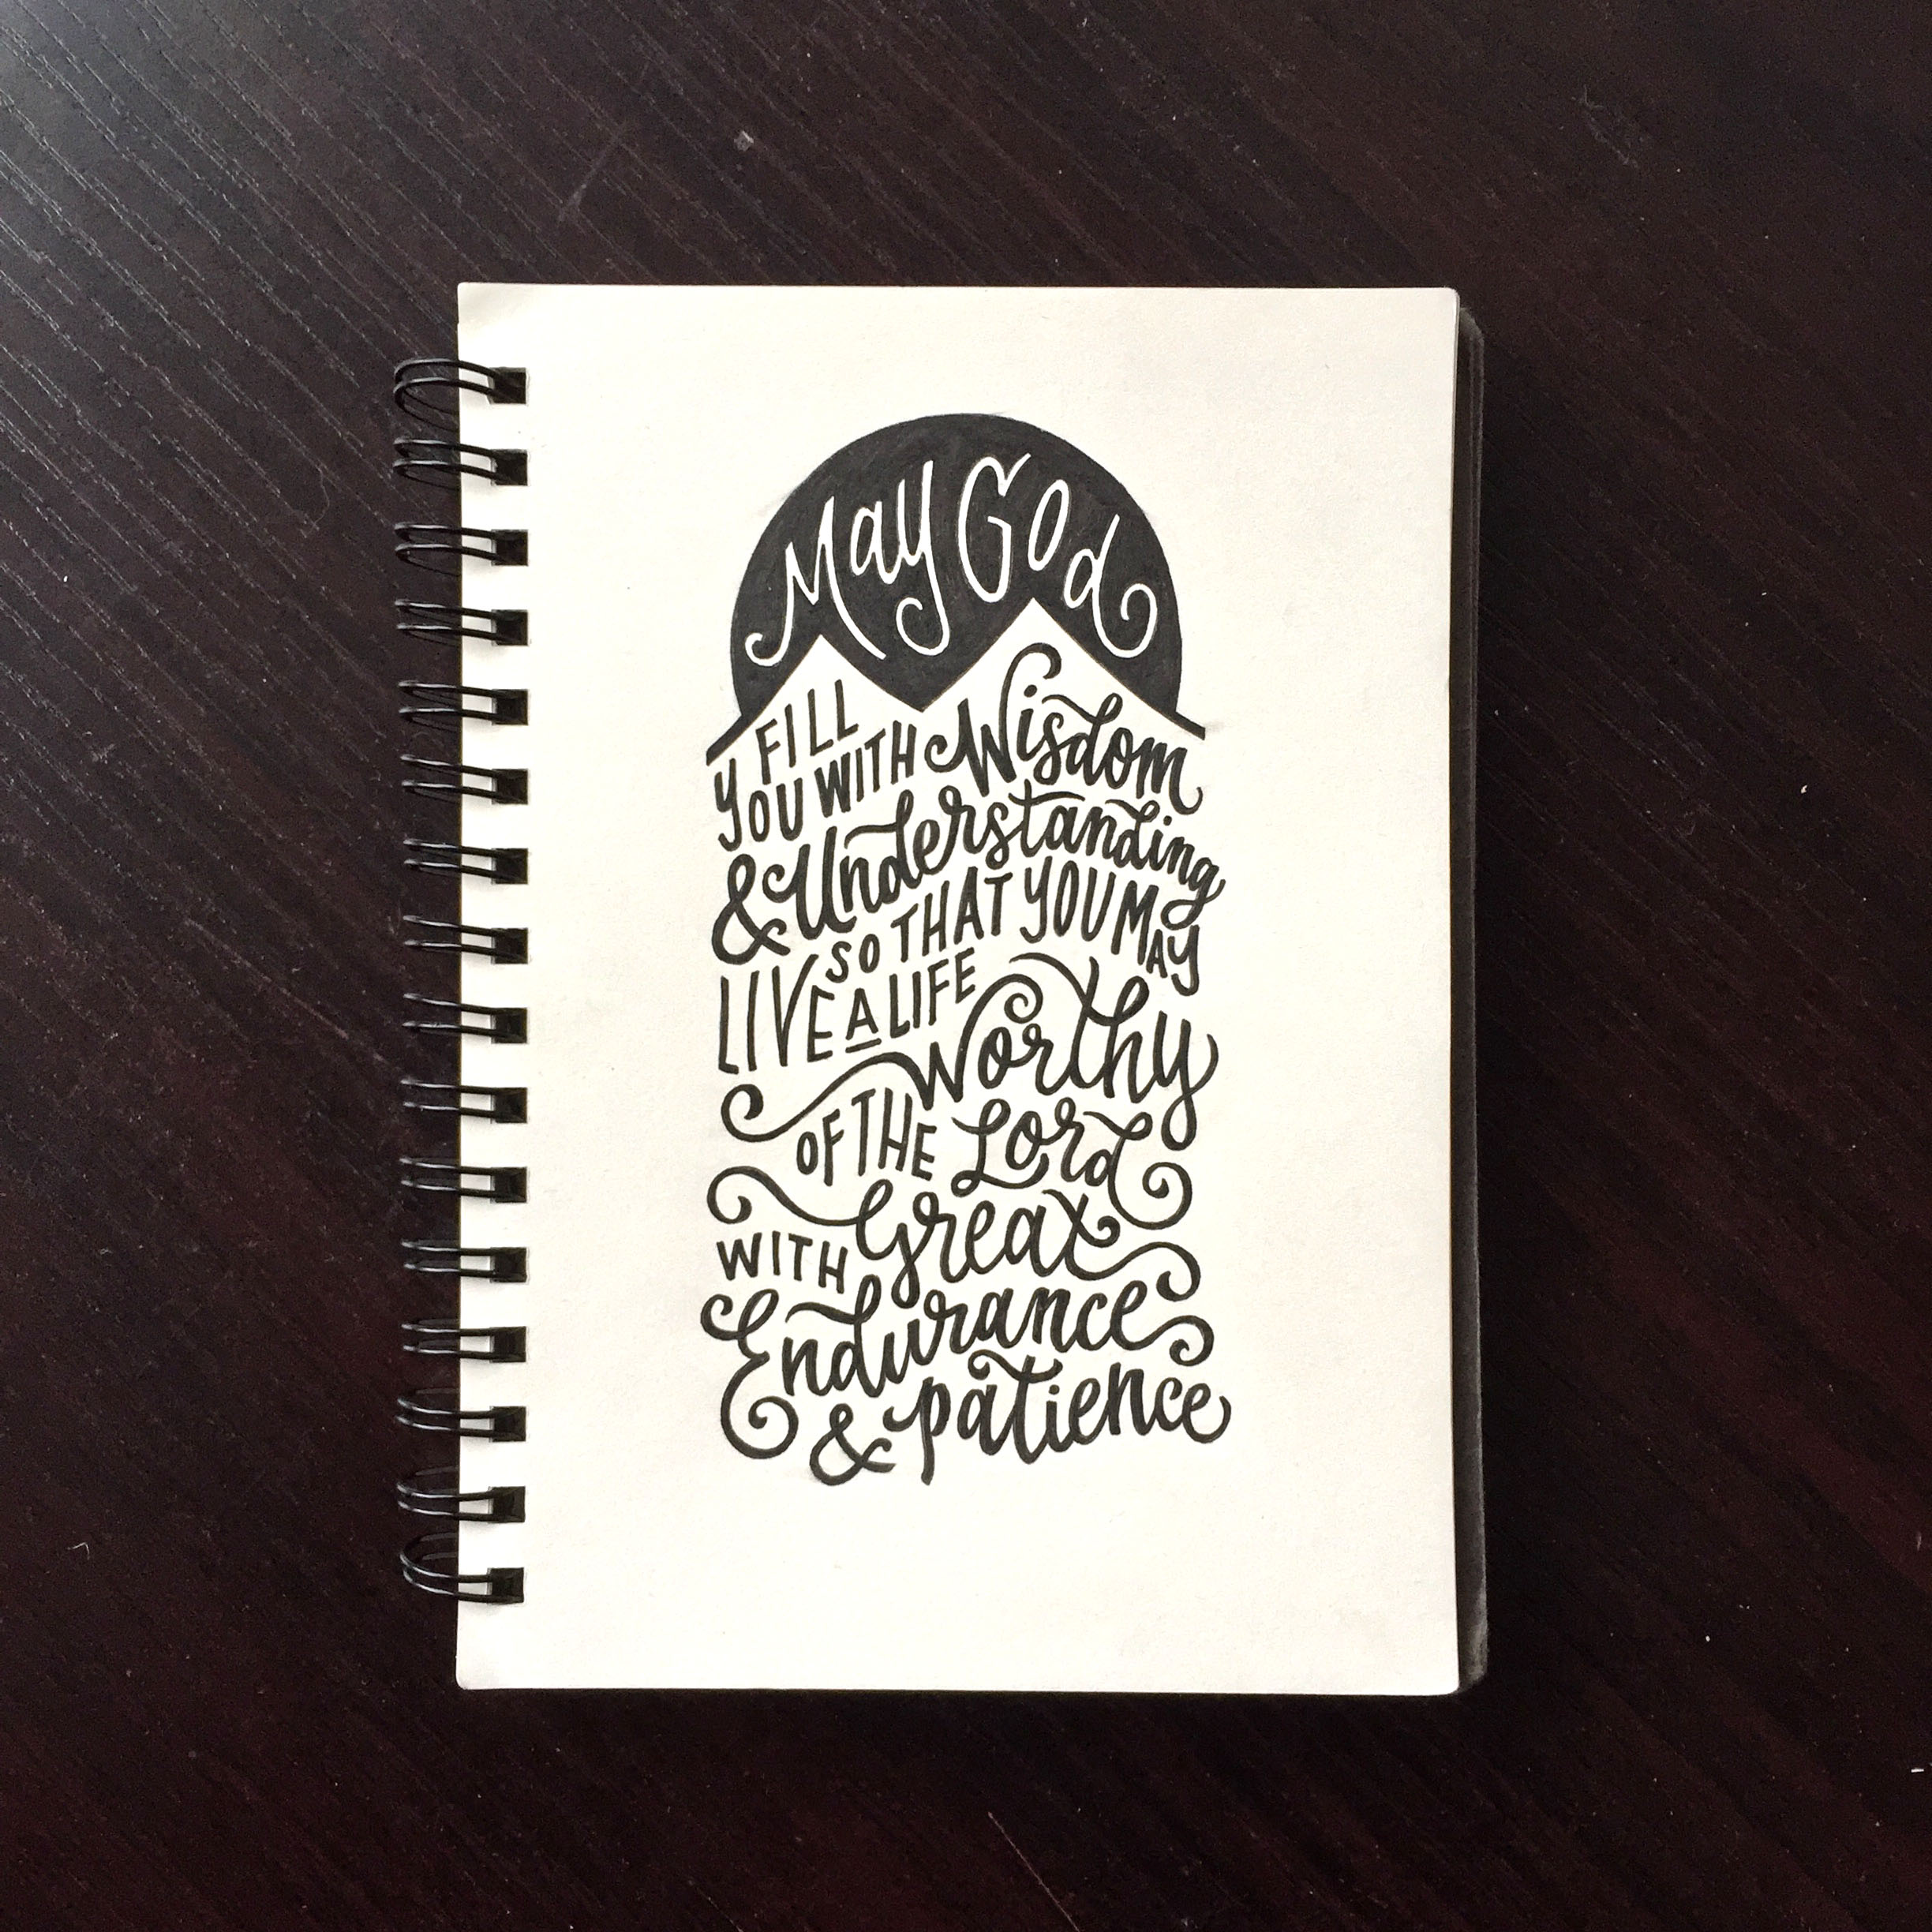 May God
FILL
YOU WITH Wisdom
& Understanding
SO THAT YOU MAY
LIVE A LIFE
Worthy
OF THE Lord
WITH Great
Endurance
& patience